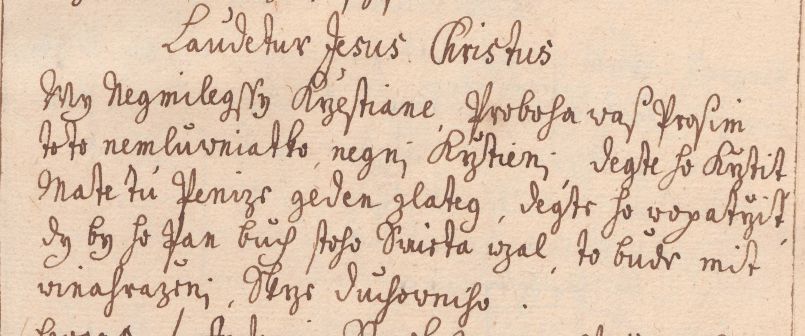 Laudetur Jesus Christus
My Negmilegssy Krzestiane, Proboha was Prosim
toto nemluwniatko, negnj Krztienj, degte ho Krztit
Mate tu Penize geden zlateg, degte ho wopatrzit,
dy by ho Pan buch stoho Swieta wzal, to bude mit
winahrazenj, Skrze duchowniho.